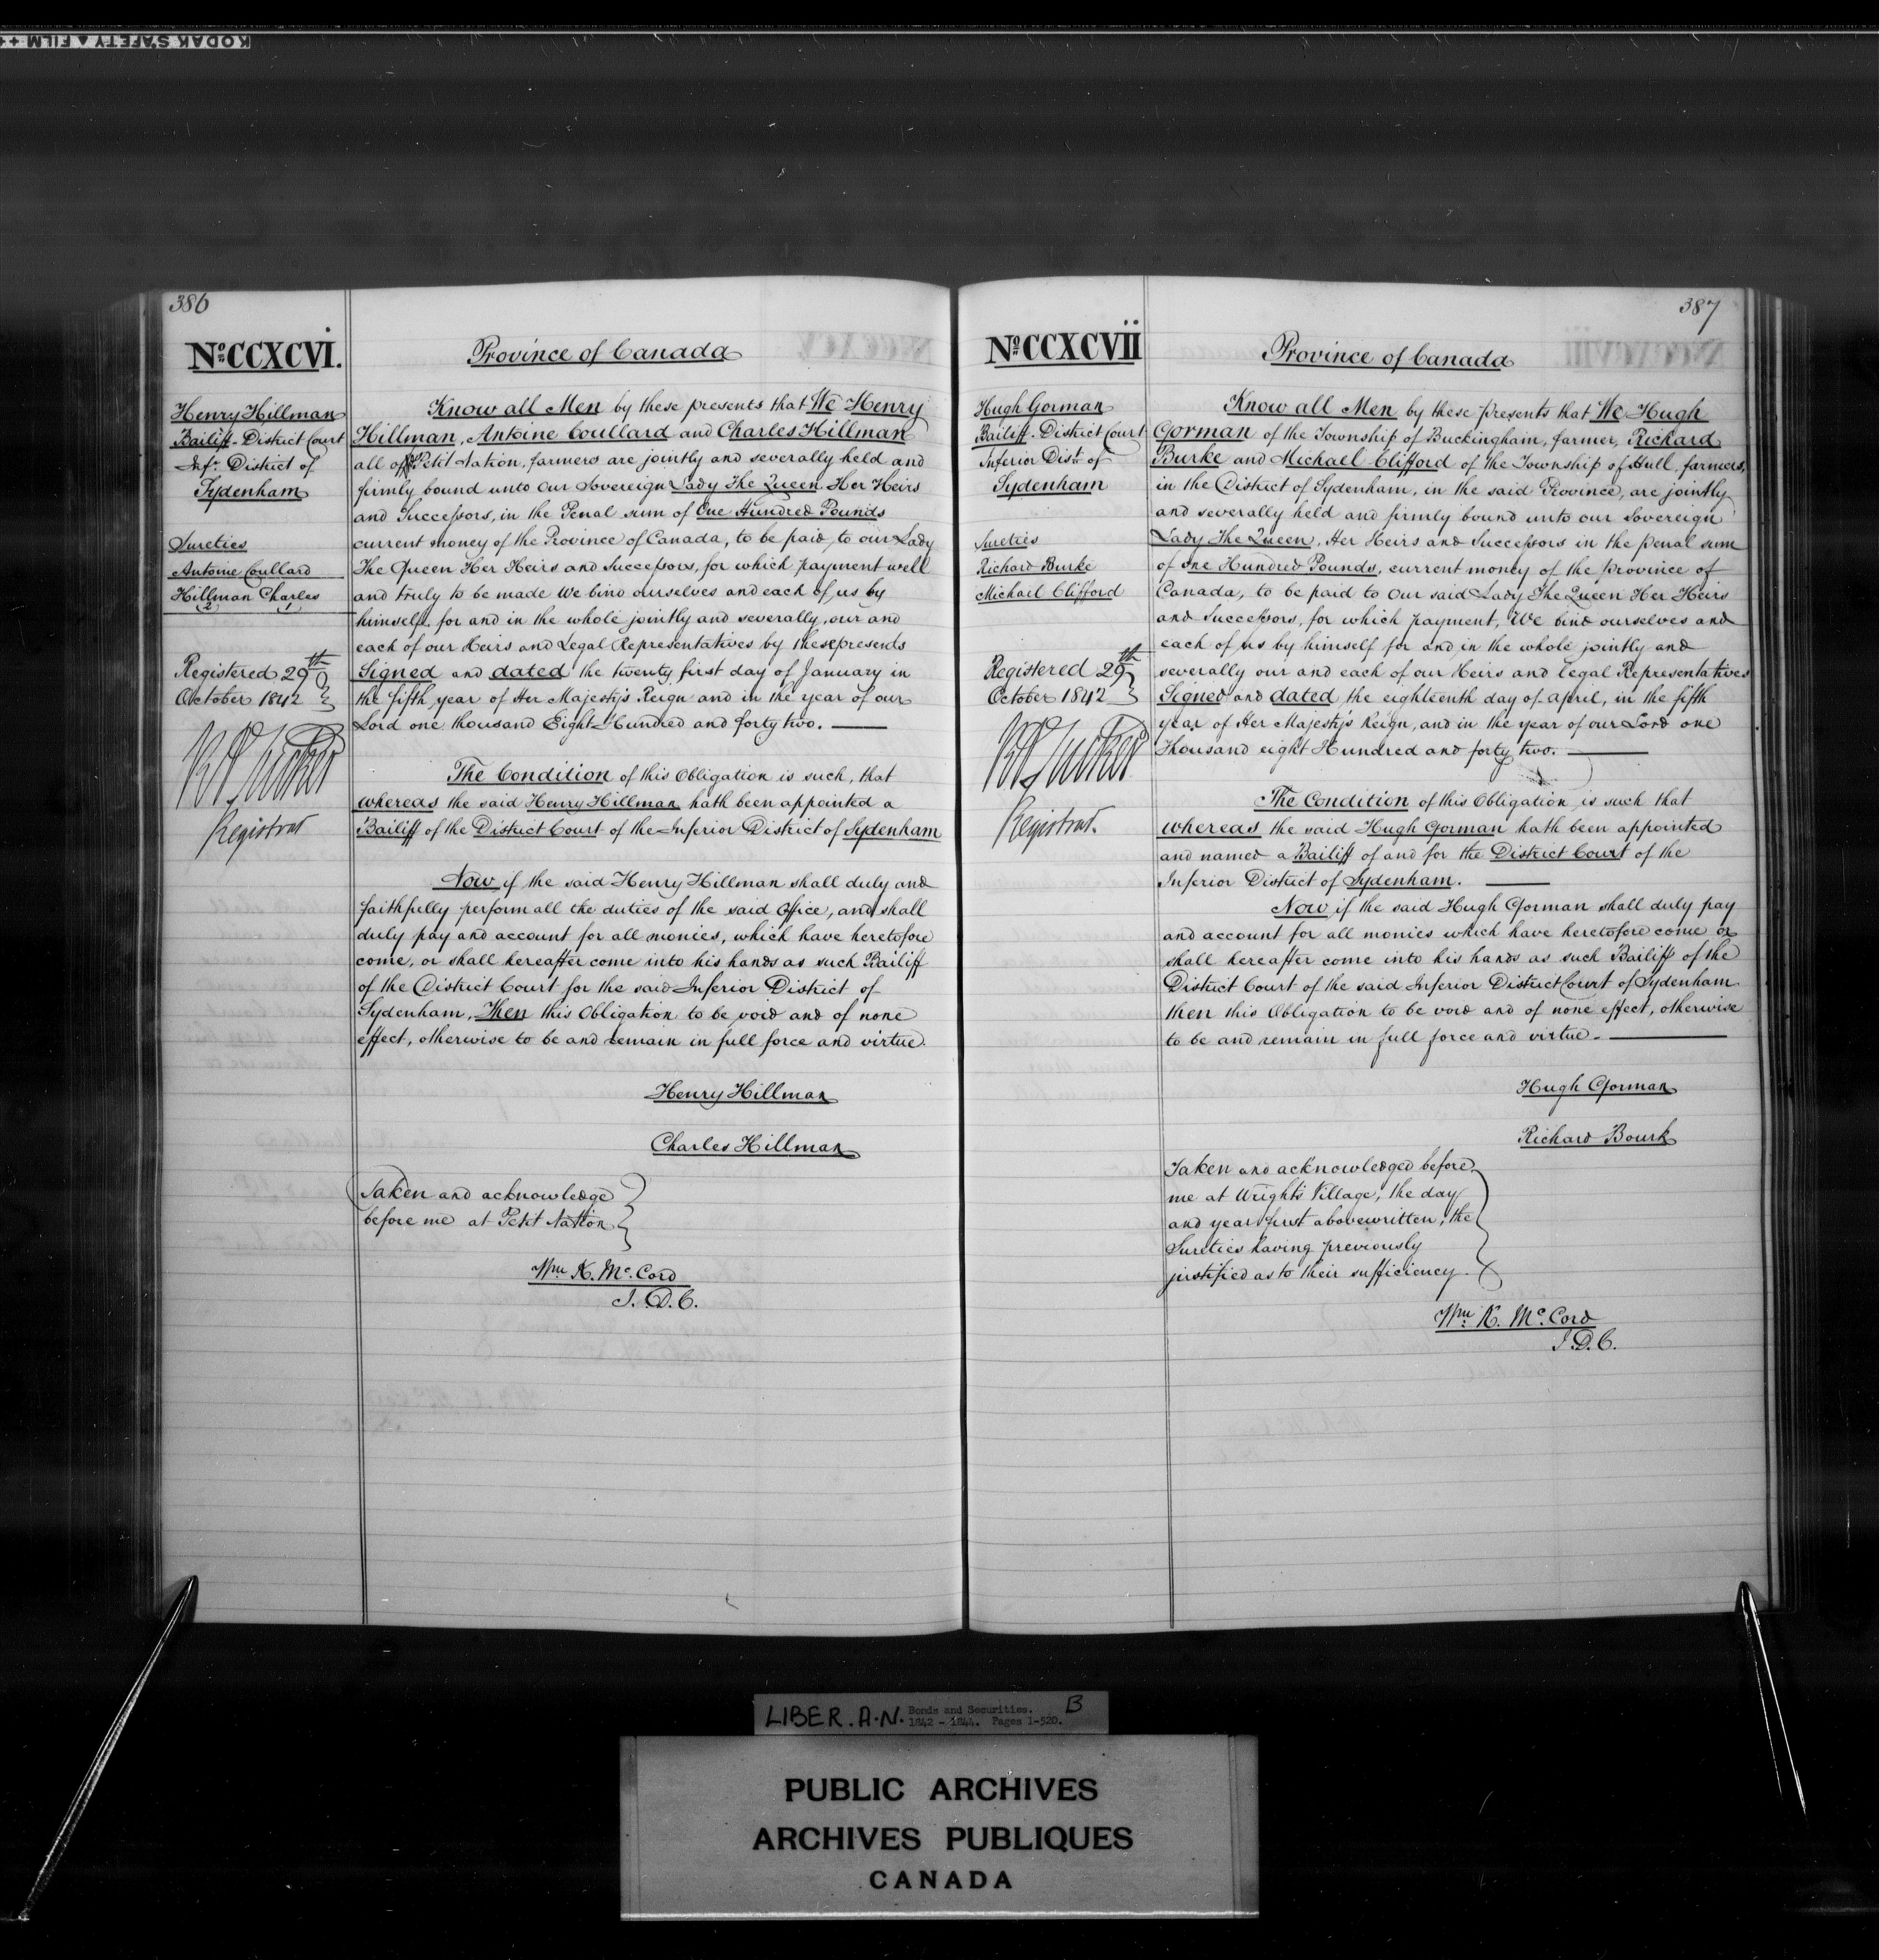 KODAK SAFETY FILM
386
No. CCXCVI.
Henry Hillman
Bailiff-District Court
Infr. District of
Sydenham
Sureties
Antoine Coullard
Hillman Charles
2 1
Registered 29th
October 1842
Registrar
Province of Canada
Know all Men by these presents that We Henry
Hillman, Antoine Coullard and Charles Hillman
all of Petit Nation, farmers are jointly and severally held and
firmly bound unto our Sovereign Lady The Queen Her Heirs
and Successors, in the Penal sum of One Hundred Pounds
current money of the Province of Canada, to be paid to our Lady
The Queen Her Heirs and Successors, for which payment well
and truly to be made We bind ourselves and each of us by
himself for and in the whole jointly and severally, our and
each of our Heirs and Legal Representatives by these presents
Signed and dated the twenty first day of January in
the fifth year of Her Majesty's Reign and in the year of our
Lord one thousand Eight Hundred and forty two.
The Condition of this Obligation is such, that
whereas the said Henry Hillman hath been appointed a
Bailiff of the District Court of the Inferior District of Sydenham
Now if the said Henry Hillman shall duly and
faithfully perform all the duties of the said office, and shall
duly pay and account for all monies, which have heretofore
come, or shall hereafter come into his hands as such Bailiff
of the District Court for the said Inferior District of
Sydenham, Then this Obligation to be void and of none
effect, otherwise to be and remain in full force and virtue.
Henry Hillman
Charles Hillman
Taken and acknowledge
before me at Petit Nation
Wm. K. Mc.Cord
J.D.C.
387
No. CCXCVII
Hugh Gorman
Bailiff-District Court
Inferior Dist. of
Sydenham
Sureties
Richard Burke
Michael Clifford
Registered 29th
October 1842
Registrar.
Province of Canada
Know all Men by these presents that We Hugh
Gorman of the Township of Buckingham, farmer, Richard
Burke and Michael Clifford of the Township of Hull, farmers,
in the District of Sydenham, in the said Province, are jointly
and severally held and firmly bound unto our Sovereign
Lady The Queen, Her Heirs and Successors in the penal sum
of One Hundred Pounds, current money of the Province of
Canada, to be paid to Our said Lady The Queen Her Heirs
and Successors, for which payment, We bind ourselves and
each of us by himself for and in the whole jointly and
severally our and each of our Heirs and Legal Representatives
Signed and dated the eighteenth day of April, in the fifth
year of Her Majesty's Reign, and in the year of our Lord one
Thousand eight Hundred and forty two.
The Condition of this Obligation is such that
whereas the said Hugh Gorman hath been appointed
and named a Bailiff of and for the District Court of the
Inferior District of Sydenham.
Now if the said Hugh Gorman shall duly pay
and account for all monies which have heretofore come or
shall hereafter come into his hands as such Bailiff of the
District Court of the said Inferior District Court of Sydenham
then this Obligation to be void and of none effect, otherwise
to be and remain in full force and virtue.
Hugh Gorman
Richard Bourk
Taken and acknowledged before
me at Wright's Village, the day
and year first above written, the
Sureties having previously
justified as to their sufficiency.
Wm. K. Mc.Cord
J.D.C.
LIBER.A.N. Bonds and Securities. B
1842 - 1844. Pages 1-520.
PUBLIC ARCHIVES
ARCHIVES PUBLIQUES
CANADA